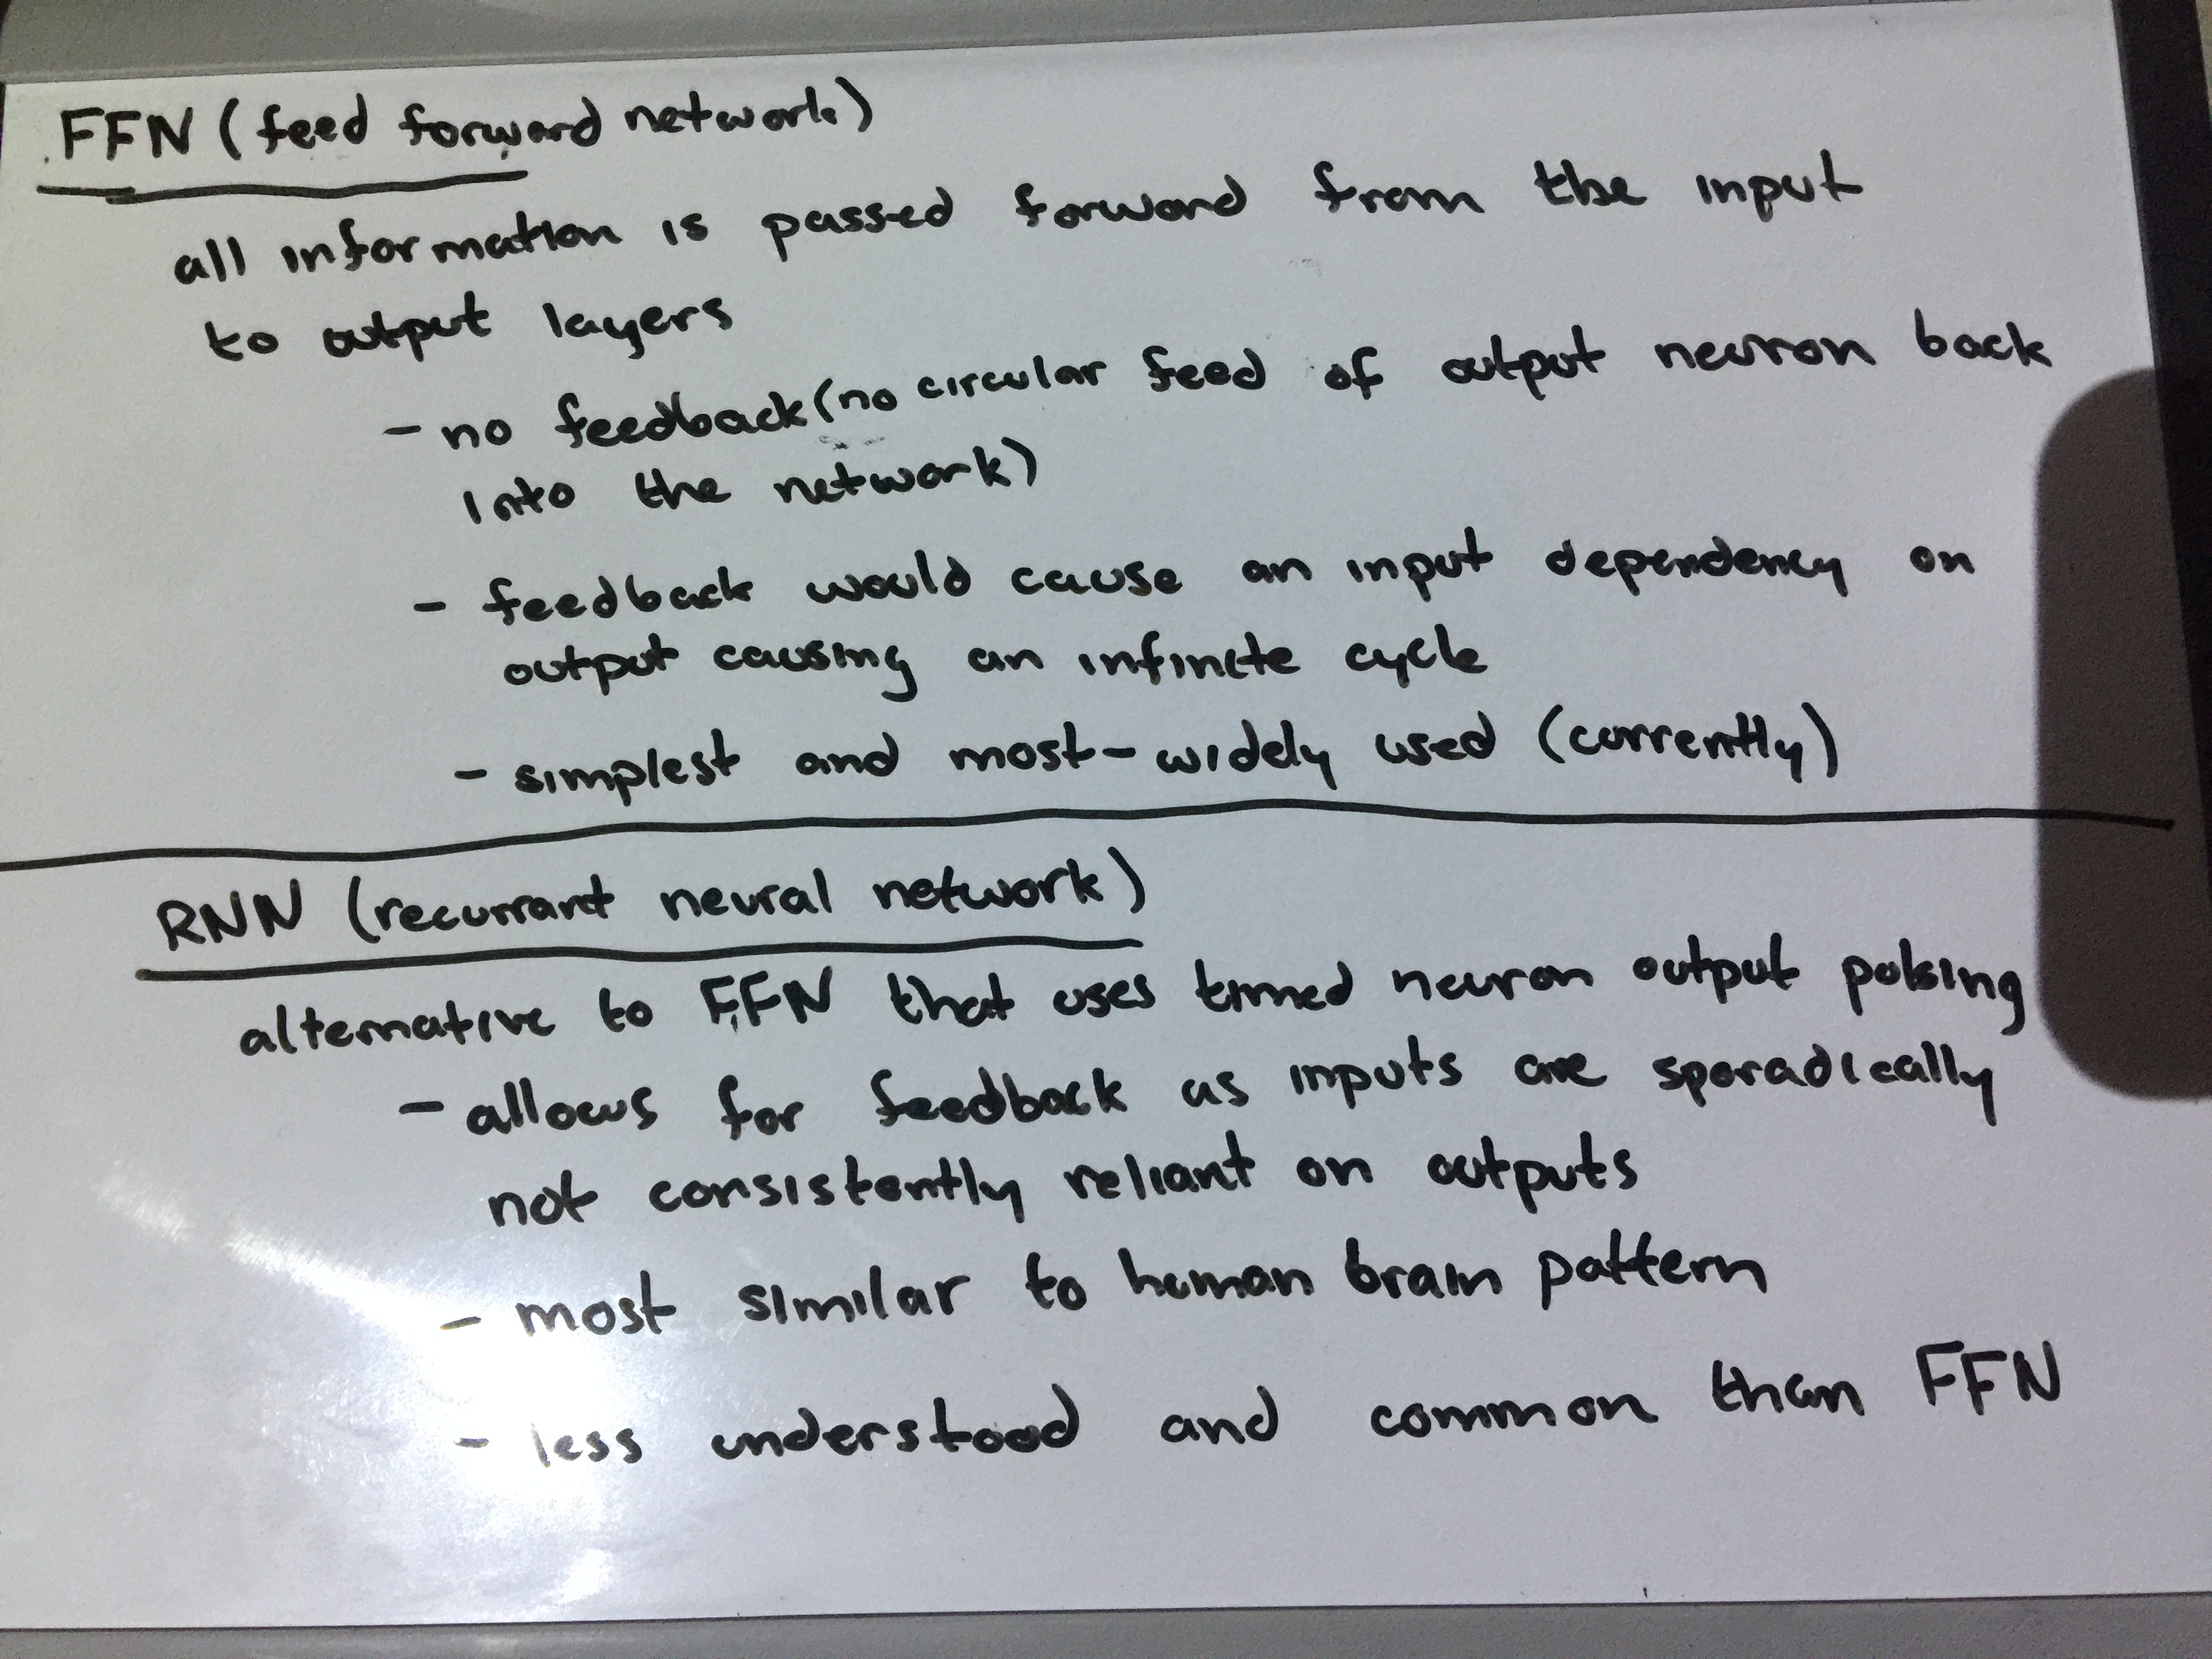 FFN (feed forward network)
all information is passed forward from the input
to output layers
- no feedback (no circular feed of output neuron back
into the network)
- feedback would cause an input dependency on
output causing an infinite cycle
- simplest and most-widely used (currently)
RNN (recurrant neural network)
alternative to FFN that uses timed neuron output pulsing
- allows for feedback as inputs are sporadically
not consistently reliant on outputs
- most similar to human brain pattern
- less understood and common than FFN